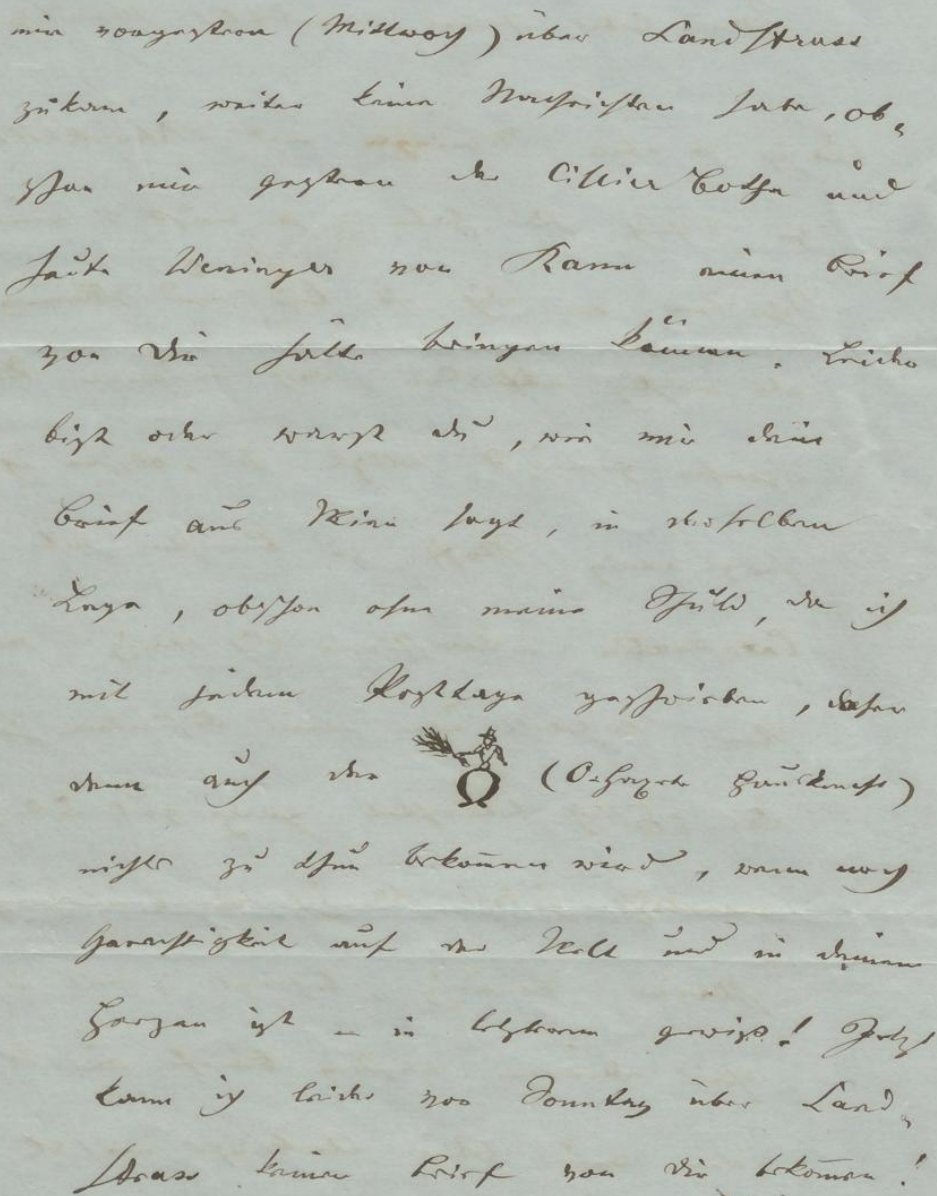 mir vorgestern (Mittwoch) über Landstrass
zukam, weiter keine Nachrichten habe, ob-
schon mir gestern der Cillier Bothe und
heute Weninger von Rann einen Brief
von Dir hätte bringen können. Leider
bist oder warst du, wie mir dein
Brief aus Wien sagt, in derselben
Lage, obschon ohne meine Schuld, da ich
mit jedem Posttage geschrieben, daher
denn auch der (Hausknecht)
nichts zu thun bekommen wird, wenn noch
Gerechtigkeit auf der Welt und in deinem
Herzen ist – in letzterem gewiß! Jetzt
kann ich leider vor Sonntag über Land-
strass keinen Brief von Dir bekommen!